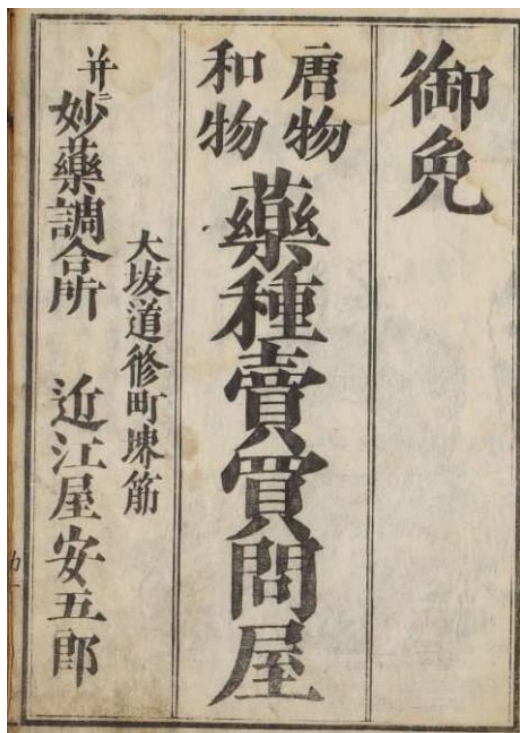 御免
唐物
和物
藥種賣買問屋
大坂道修町堺筋
并ニ妙藥調合所 近江屋安五郎